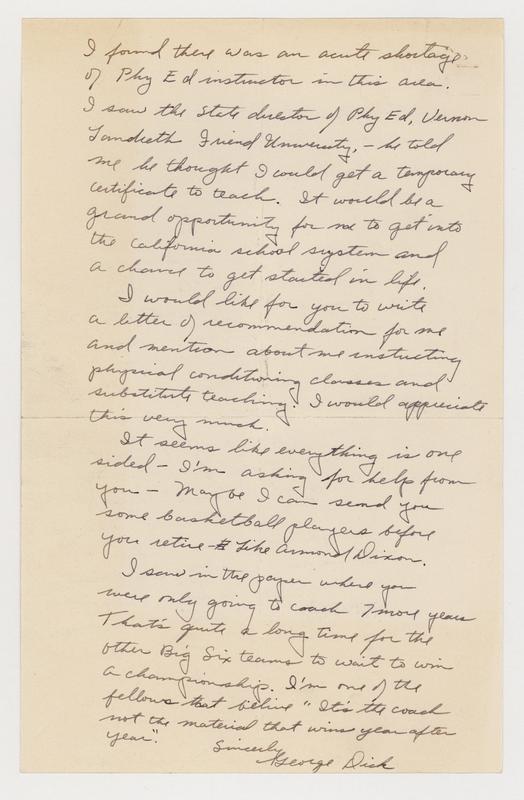 I found there was an acute shortage
of Phy Ed instructor in this area.
I saw the State director of Phy Ed, Vernon
Landreth Friend University, - he told
me he thought I would get a temporary
certificate to teach. It would be a
grand opportunity for me to get into
the California school system and
a chance to get started in life.
I would like for you to write
a letter of recommendation for me
and mention about me instucting
physical conditioning classes and
substitute teaching. I would appreciate
this very much.
It seems like everything is one
sided - I'm asking for help from
you - Maybe I can send you
some basketball players before
you retire - Like Armond Dixon.
I saw in the paper where you
were only going to coach 7 more years
That's quite a long time for the
other Big Six teams to wait to win
a championship. I'm one of the
fellows that belive "It's the coach
not the material that wins year after
year".
Sincerely
George Dick